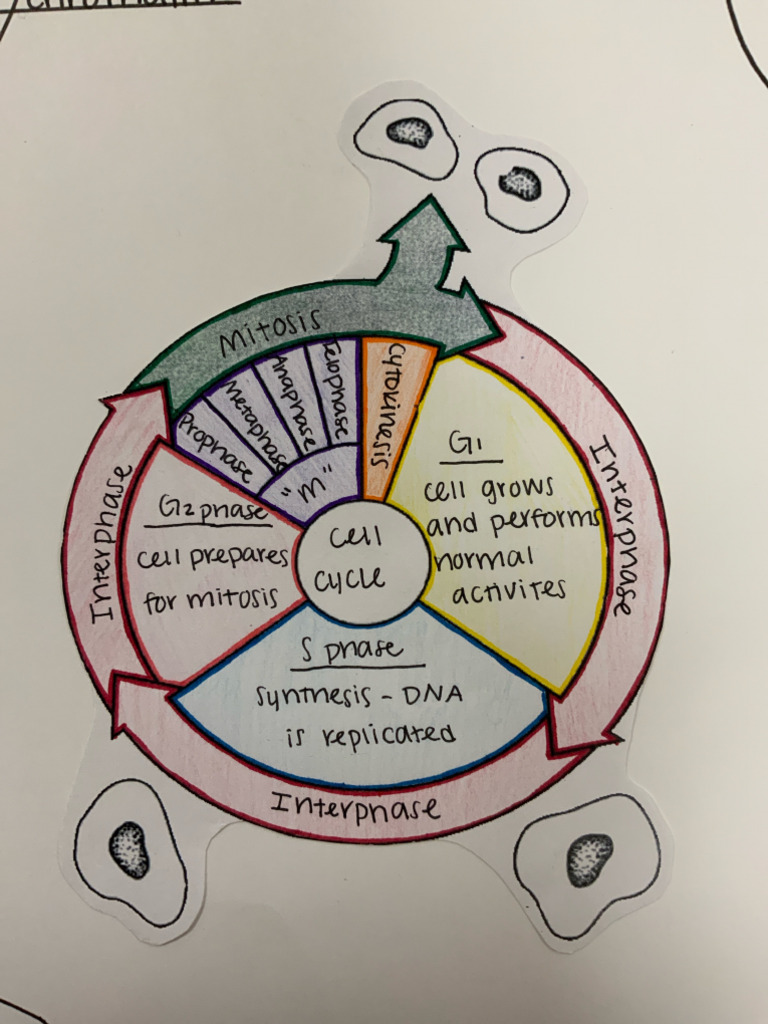 Mitosis
Prophase
Metaphase
Anaphase
Telophase
"M"
Cytokinesis
G1
cell grows
and performs
normal
activites
Interphase
S phase
synthesis - DNA
is replicated
Interphase
G2 phase
cell prepares
for mitosis
Interphase
cell
cycle